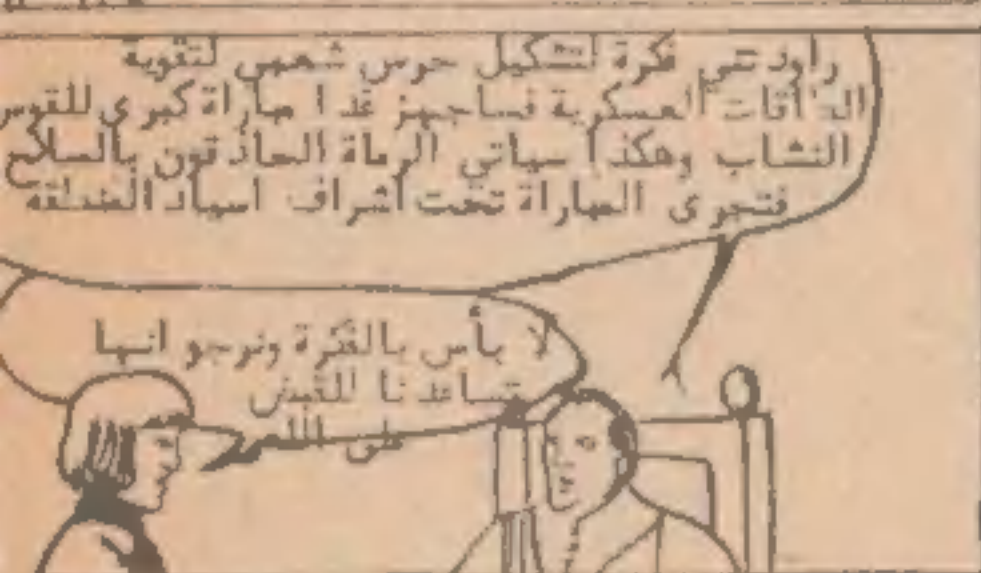 راودتني فكرة لتشكيل حرس شعبي لتقوية
الطاقات العسكرية فساجهز غدا مباراة كبرى للقوس
النشاب وهكذا سياتي الرماة الحاذقون بالسلاح
فتجرى المباراة تحت اشراف اسياد المنطقة
لا بأس بالفكرة ونرجو انها
تساعدنا للقبض
على